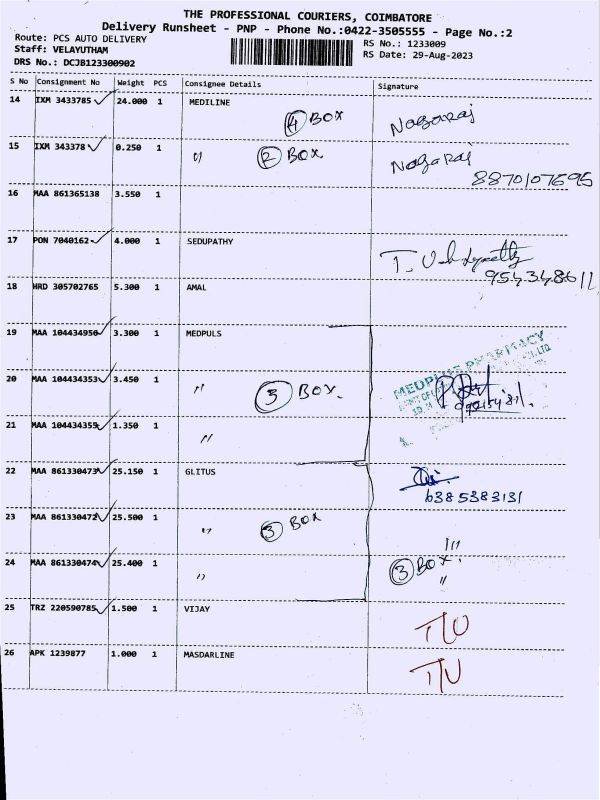 THE PROFESSIONAL COURIERS, COIMBATORE
Delivery Runsheet - PNP - Phone No.:0422-3505555 - Page No.:2
Route: PCS AUTO DELIVERY
RS No.: 1233009
Staff: VELAYUTHAM
RS Date: 29-Aug-2023
DRS No.: DCJB123300902
S No Consignment No Weight PCS Consignee Details Signature
14 IXM 3433785 ✓ 24.000 1 MEDILINE
④ BOX Nagaraj
15 IXM 343378 ✓ 0.250 1 〃 ② BOX. Nagaraj
8870107695
16 MAA 861365138 3.550 1
17 PON 7040162 ✓ 4.000 1 SEDUPATHY
18 HRD 305702765 5.300 1 AMAL
19 MAA 104434950 ✓ 3.300 1 MEDPULS
MEDPLUS PHARMACY
20 MAA 104434353 ✓ 3.450 1 〃 ③ BOX.
21 MAA 104434355 ✓ 1.350 1 〃
22 MAA 861330473 ✓ 25.150 1 GLITUS
6385383131
23 MAA 861330472 ✓ 25.500 1 〃 ③ BOX
24 MAA 861330474 ✓ 25.400 1 〃 ③ BOX. 〃
25 TRZ 220590785 ✓ 1.500 1 VIJAY T/U
26 APK 1239877 1.000 1 MASDARLINE T/U